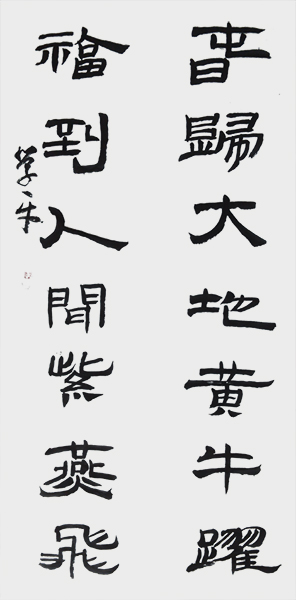 旾歸大地黄牛躍
福到人間紫燕飛